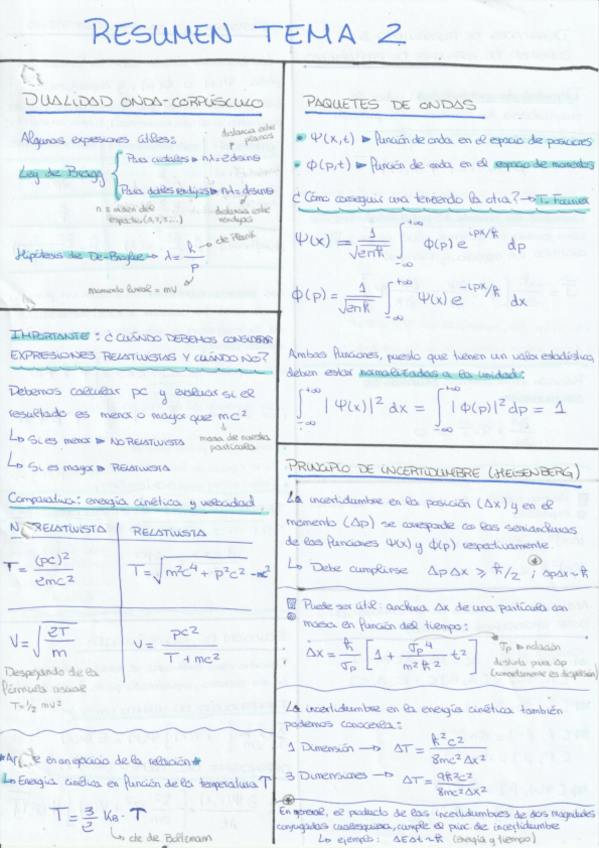 RESUMEN TEMA 2
DUALIDAD ONDA-CORPÚSCULO
Algunas expresiones útiles:
distancia entre planos
Ley de Bragg
Para cristales ► nλ = 2dsenθ
Para dobles rendijas ► nλ = dsenθ
n ≡ orden del espectro (1,2,3...)
distancia entre rendijas
Hipótesis de De-Broglie → λ = h/p
→ cte Plank
momento lineal = mv
IMPORTANTE: ¿CUÁNDO DEBEMOS CONSIDERAR
EXPRESIONES RELATIVISTAS Y CUÁNDO NO?
Debemos calcular pc y evaluar si el
resultado es menor o mayor que mc²
masa de nuestra partícula
↳ Si es menor ► NO RELATIVISTA
↳ Si es mayor ► RELATIVISTA
Comparativa: energía cinética y velocidad
NO RELATIVISTA
RELATIVISTA
T = (pc)²/2mc²
T = √m²c⁴ + p²c² - mc²
V = √2T/m
V = pc²/T + mc²
Despejando de la
fórmula usual
T = 1/2 mv²
en an opacio de la relación
↳ Energía cinética en función de la temperatura T
T = 3/2 KB · T
↳ cte de Boltzmann
PAQUETES DE ONDAS
Ψ(x,t) ► función de onda en el espacio de posiciones
Φ(p,t) ► función de onda en el espacio de momentos
¿Cómo conseguir una teniendo la otra? → T. Fourier
Ψ(x) = 1/√2πħ ∫-∞+∞ Φ(p) e^ipx/ħ dp
Φ(p) = 1/√2πħ ∫-∞+∞ Ψ(x) e^-ipx/ħ dx
Ambas funciones, puesto que tienen un valor estadístico,
deben estar normalizadas a la unidad:
∫-∞+∞ |Ψ(x)|² dx = ∫-∞+∞ |Φ(p)|² dp = 1
PRINCIPIO DE INCERTIDUMBRE (HEISENBERG)
La incertidumbre en la posición (Δx) y en el
momento (Δp) se corresponde con las semianchuras
de las funciones Ψ(x) y Φ(p) respectivamente.
↳ Debe cumplirse Δp Δx ≥ ħ/2 ; ΔpΔx ~ ħ
Puede ser útil: anchura Δx de una partícula con
masa en función del tiempo:
Δx = ħ/σp [1 + σp⁴/m²ħ² t²]
σp ► notación
distinta para Δp
(correctamente es dispersión)
La incertidumbre en la energía cinética también
podemos conocerla:
1 Dimensión → ΔT = ħ²c²/8mc²Δx²
3 Dimensiones → ΔT = 9ħ²c²/8mc²Δx²
En general, el producto de las incertidumbres de dos magnitudes
conjugadas cualesquiera, cumple el princ. de incertidumbre
↳ ejemplo: ΔEΔt ~ ħ (energía y tiempo)